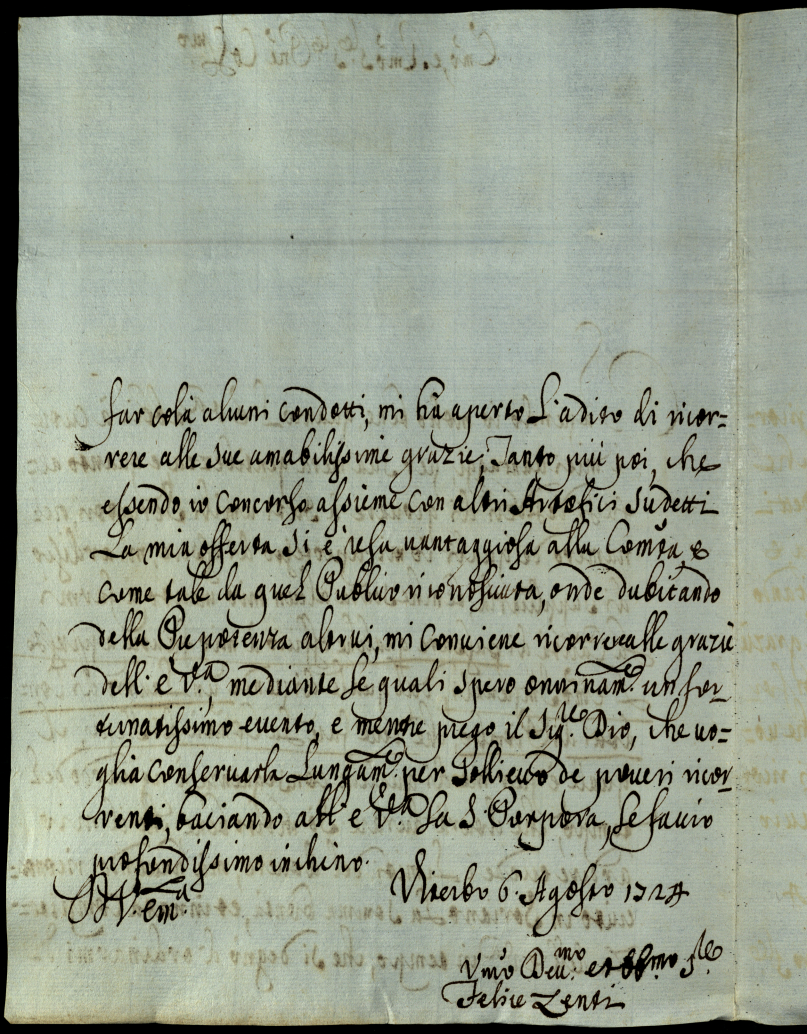 far colà alcuni condotti, mi hà aperto L'adito di ricor=
rere alle sue amabilissime grazie; Tanto più poi, che
essendo io Concorso assieme con altri Artefici sudetti
La mia offerta si è resa vantaggiosa alla Com.tà, e
come tale da quel Publico riconosciuta, onde dubitando
della Prepotenza altrui, mi Conviene ricorrere alle grazie
dell' E V.ra, mediante le quali spero onninam.e un for=
tunatissimo evento, e mentre prego il Sig.re Dio, che vo=
glia conservarla Lungam.e per Sollievo de poveri ricor=
renti, baciando all' E V.ra La S. Porpora, le faccio
profondissimo inchino.
D V. Em.a
Viterbo 6. Agosto 1724
Vmo Deu.mo et Obb.mo S.re
Felice Zenti